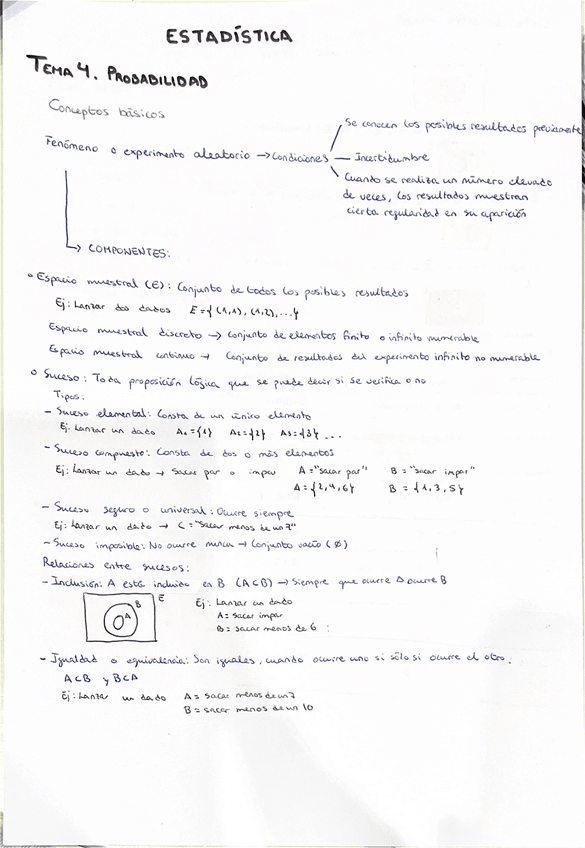 ESTADÍSTICA
TEMA 4. PROBABILIDAD
Conceptos básicos
Se conocen los posibles resultados previamente
Fenómeno o experimento aleatorio → Condiciones — Incertidumbre
Cuando se realiza un número elevado
de veces, los resultados muestran
cierta regularidad en su aparición
→ COMPONENTES:
Espacio muestral (E): Conjunto de todos los posibles resultados
Ej: Lanzar dos dados E = {(1,1), (1,2), ...}
Espacio muestral discreto → conjunto de elementos finito o infinito numerable
Espacio muestral continuo → Conjunto de resultados del experimento infinito no numerable
Suceso: Toda proposición lógica que se puede decir si se verifica o no
Tipos:
- Suceso elemental: Consta de un único elemento
Ej: Lanzar un dado A₁={1} A₂={2} A₃={3} ...
- Suceso compuesto: Consta de dos o más elementos
Ej: Lanzar un dado → Sacar par o impar A = "sacar par" B = "sacar impar"
A = {2,4,6} B = {1,3,5}
- Suceso seguro o universal: Ocurre siempre
Ej: Lanzar un dado → C = "Sacar menos de un 7"
- Suceso imposible: No ocurre nunca → Conjunto vacío (Ø)
Relaciones entre sucesos:
- Inclusión: A está incluido en B (A⊂B) → Siempre que ocurre A ocurre B
A B E
Ej: Lanzar un dado
A = sacar impar
B = sacar menos de 6
- Igualdad o equivalencia: Son iguales, cuando ocurre uno si sólo si ocurre el otro.
A⊂B y B⊂A
Ej: Lanzar un dado A = sacar menos de un 7
B = sacar menos de un 10